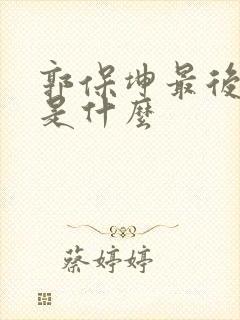 郭保坤最後
是什麼
蔡婷婷